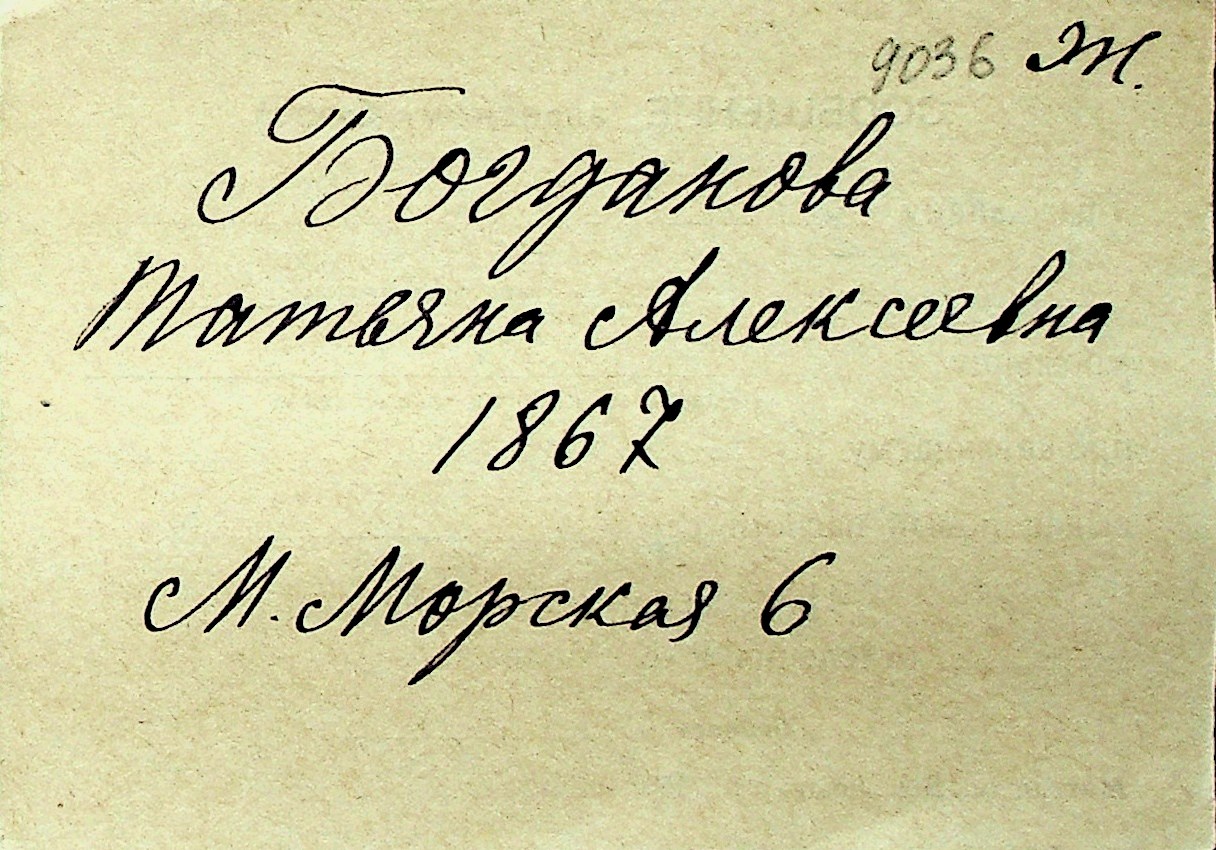 9036 Ж.
Богданова
Татьяна Алексеевна
1867
М. Морская 6